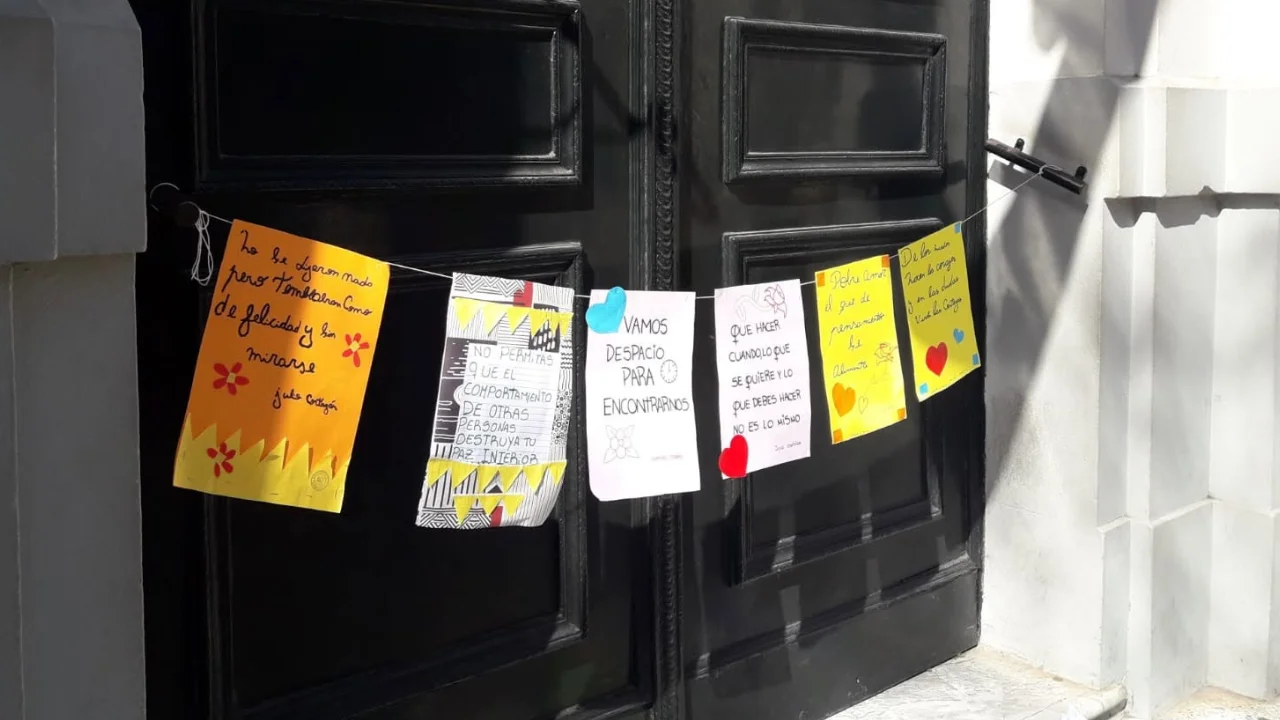 No se dijeron nada
pero temblaron como
de felicidad y sin
mirarse
julio Cortázar
NO PERMITAS
QUE EL
COMPORTAMIENTO
DE OTRAS
PERSONAS
DESTRUYA TU
PAZ INTERIOR
VAMOS
DESPACIO
PARA
ENCONTRARNOS
QUE HACER
CUANDO, LO QUE
SE QUIERE Y LO
QUE DEBES HACER
NO ES LO MISMO
Pobre Amor
el que de
pensamientos
se
Alimenta
De los
y en las dudas